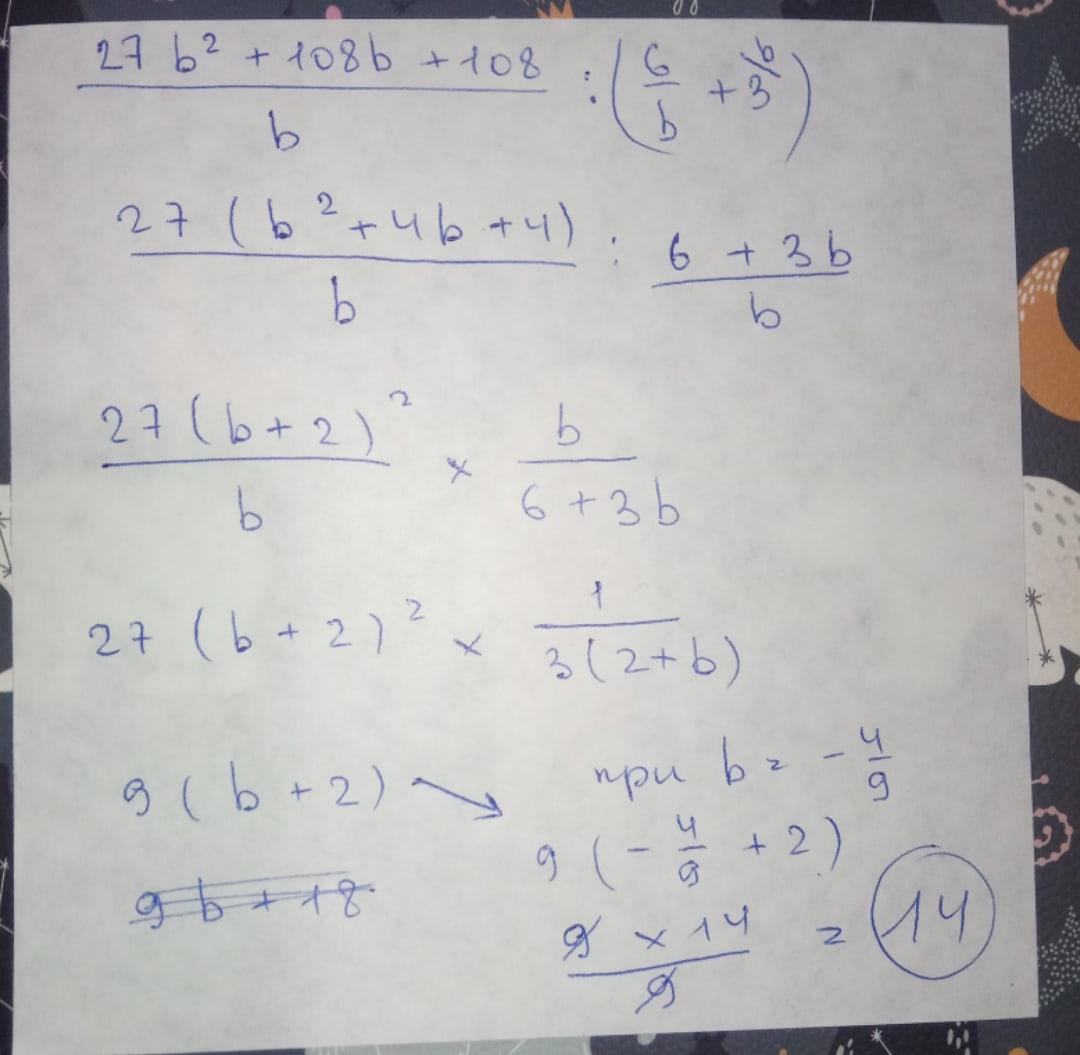 27 b² + 108b + 108 / b : (6/b + 3^b/)
27 (b² + 4b + 4) / b : 6 + 3b / b
27 (b + 2)² / b × b / 6 + 3b
27 (b + 2)² × 1 / 3(2 + b)
9 (b + 2) при b = - 4/9
9 (- 4/9 + 2)
9b + 18
9 × 14 / 9 = 14